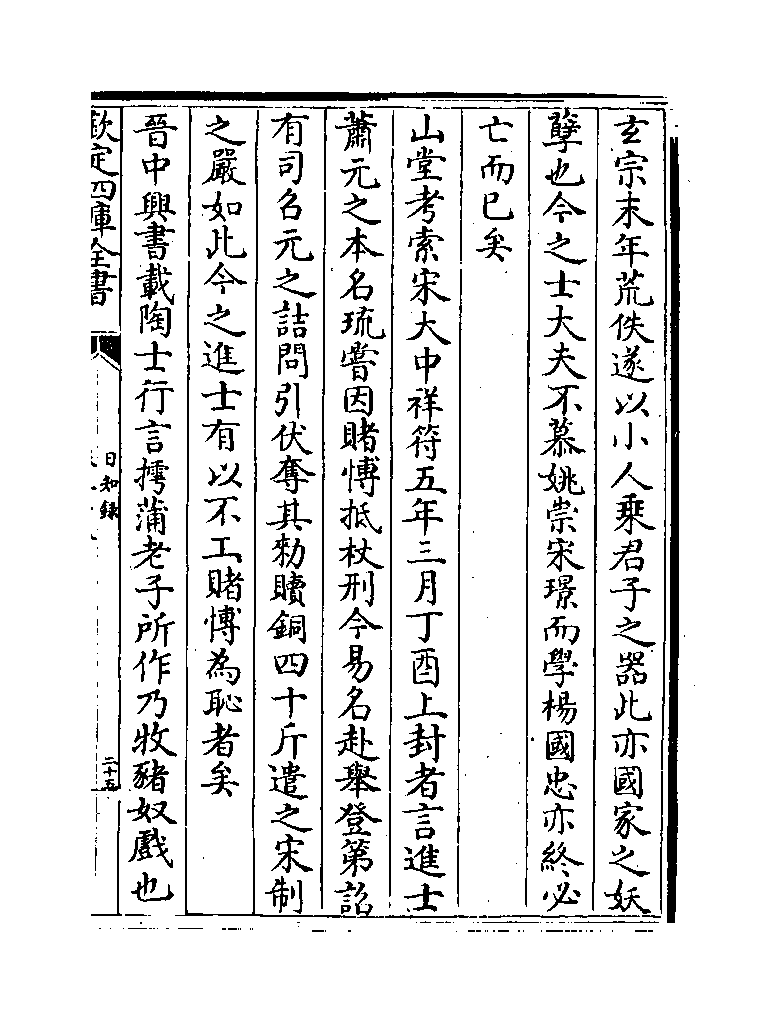 玄宗末年荒佚遂以小人乗君子之器此亦國家之妖
孽也今之士大夫不慕姚崇宋璟而學楊國忠亦終必
亡而已矣
山堂考索宋大中祥符五年三月丁酉上封者言進士
蕭元之本名琉嘗因賭愽抵杖刑今易名赴舉登第詔
有司召元之詰問引伏奪其勅贖銅四十斤遣之宋制
之嚴如此今之進士有以不工賭愽為恥者矣
晉中興書載陶士行言摴蒲老子所作乃牧豬奴戲也
欽定四庫全書
日知録
二十五